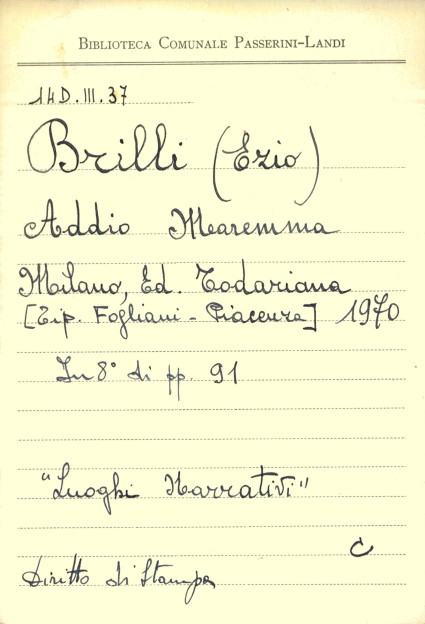 BIBLIOTECA COMUNALE PASSERINI-LANDI
14D.III.37
Brilli (Ezio)
Addio Maremma
Milano, Ed. Todariana
[Tip. Fogliani - Piacenza] 1970
In 8° di pp. 91
"Luoghi Narrativi"
C
Diritto di Stampa